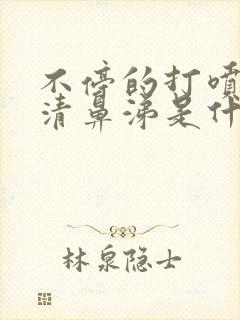 不停的打喷
清鼻涕是什
林泉隐士